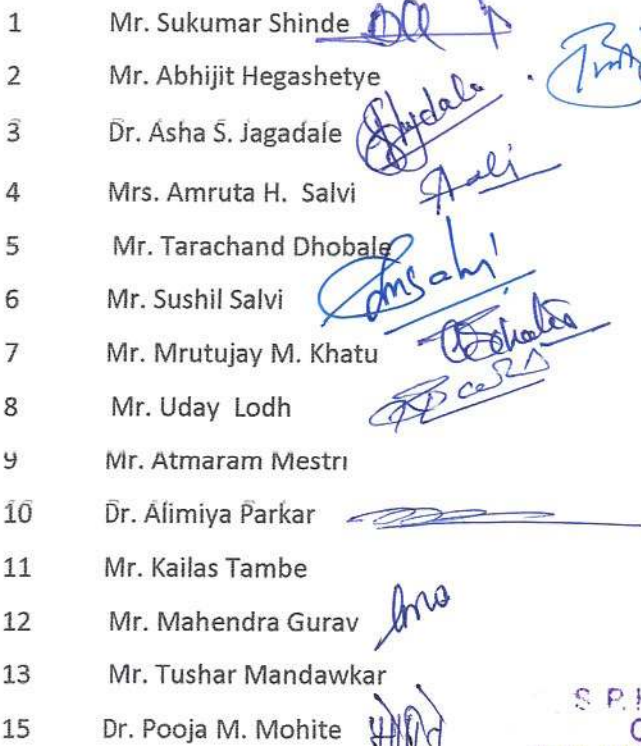 1 Mr. Sukumar Shinde
2 Mr. Abhijit Hegashetye
3 Dr. Asha S. Jagadale
4 Mrs. Amruta H. Salvi
5 Mr. Tarachand Dhobale
6 Mr. Sushil Salvi
7 Mr. Mrutujay M. Khatu
8 Mr. Uday Lodh
9 Mr. Atmaram Mestri
10 Dr. Alimiya Parkar
11 Mr. Kailas Tambe
12 Mr. Mahendra Gurav
13 Mr. Tushar Mandawkar
S. P.
15 Dr. Pooja M. Mohite